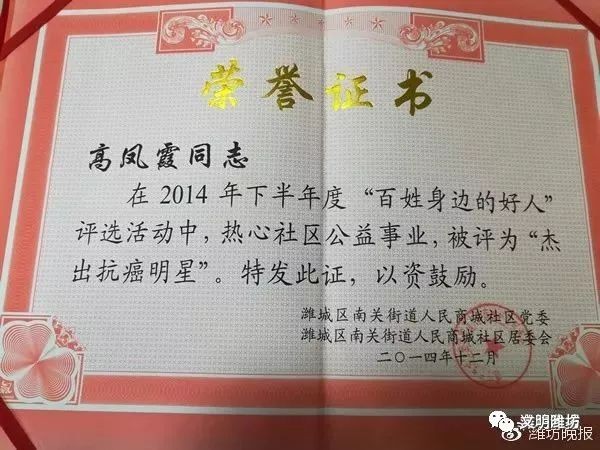 荣誉证书
高凤霞同志
在2014年下半年度“百姓身边的好人”
评选活动中，热心社区公益事业，被评为“杰
出抗癌明星”。特发此证，以资鼓励。
潍城区南关街道人民商城社区党委
潍城区南关街道人民商城社区居委会
二〇一四年十二月
文明潍坊
潍坊晚报